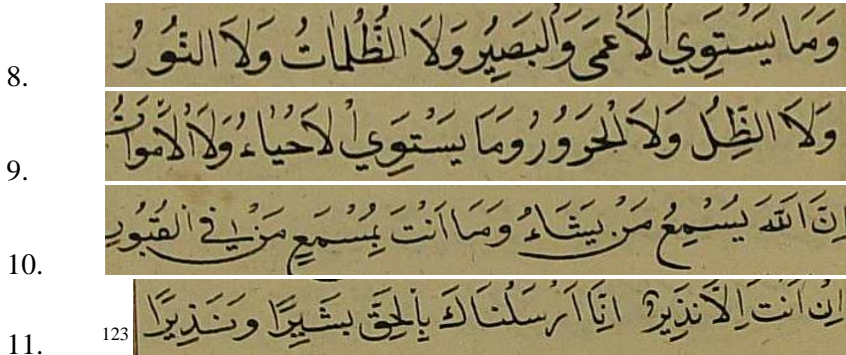 8. وَمَا يَسْتَوِي الاَعْمَى وَالْبَصِيْر وَلَا الظُّلُمَاتُ وَلَا النُّوْرُ
9. وَلَا الظِّلُ وَلَا الْحَرُوْرُ وَمَا يَسْتَوِي الاَحْيَاءُ وَلَا الْاَمْوَاتُ
10. اِنَّ اللّٰهَ يُسْمِعُ مَنْ يَشَاءُ وَمَا اَنْتَ بِمُسْمَعٍ مَنْ فِي الْقُبُورِ
11. 123 اِنْ اَنْتَ اِلَّا نَذِيْرٌ اِنَّا اَرْسَلْنَاكَ بِالْحَقِّ بَشِيْرًا وَنَذِيْرًا